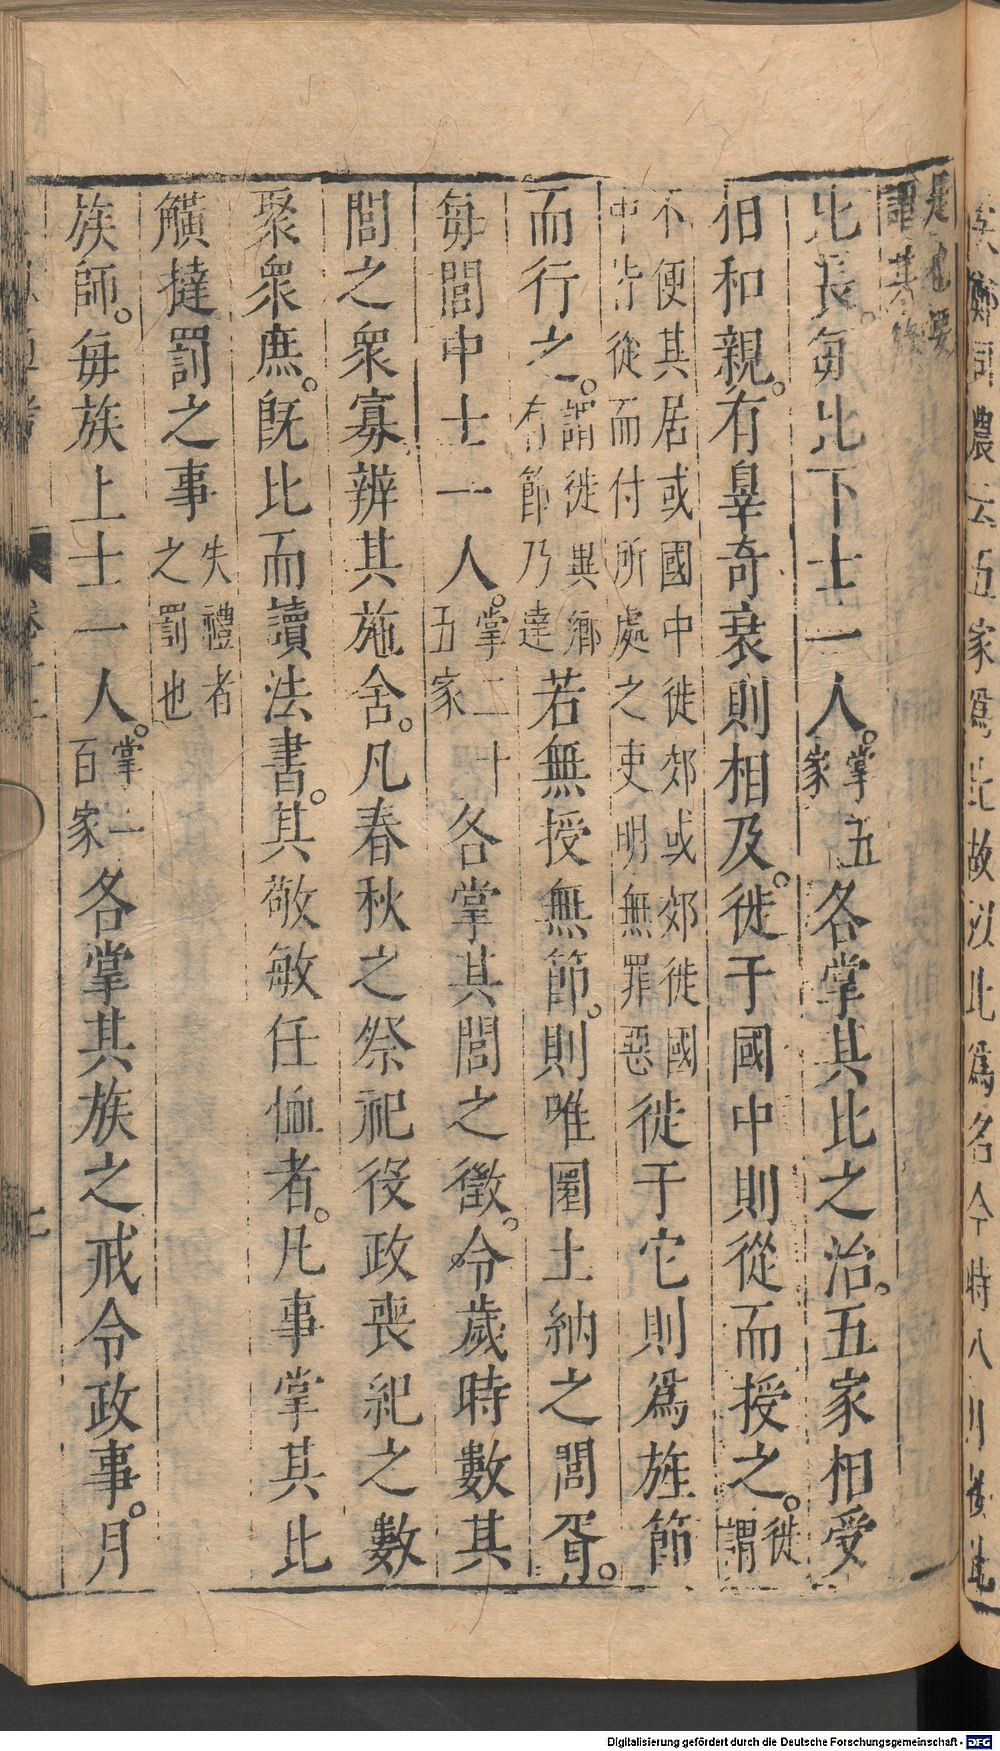 比長每比下士一人掌五家各掌其比之治五家相受
相和親有辠奇衺則相及徙于國中則從而授之徙謂
不便其居或國中徙郊或郊徙國中皆從而付所處之吏明無罪惡徙于它則爲旌節
而行之謂徙異鄉有節乃達若無授無節則唯圜土納之閭胥
每閭中士一人掌二十五家各掌其閭之徵令歲時數其
閭之衆寡辨其施舍凡春秋之祭祀役政喪祀之數
聚衆庶旣比而讀法書其敬敏任恤者凡事掌其比
觵撻罰之事失禮者之罰也
族師每族上士一人掌一百家各掌其族之戒令政事月
鄭司農云五家爲比故以比爲名今時八月
Digitalisierung gefördert durch die Deutsche Forschungsgemeinschaft - DFG